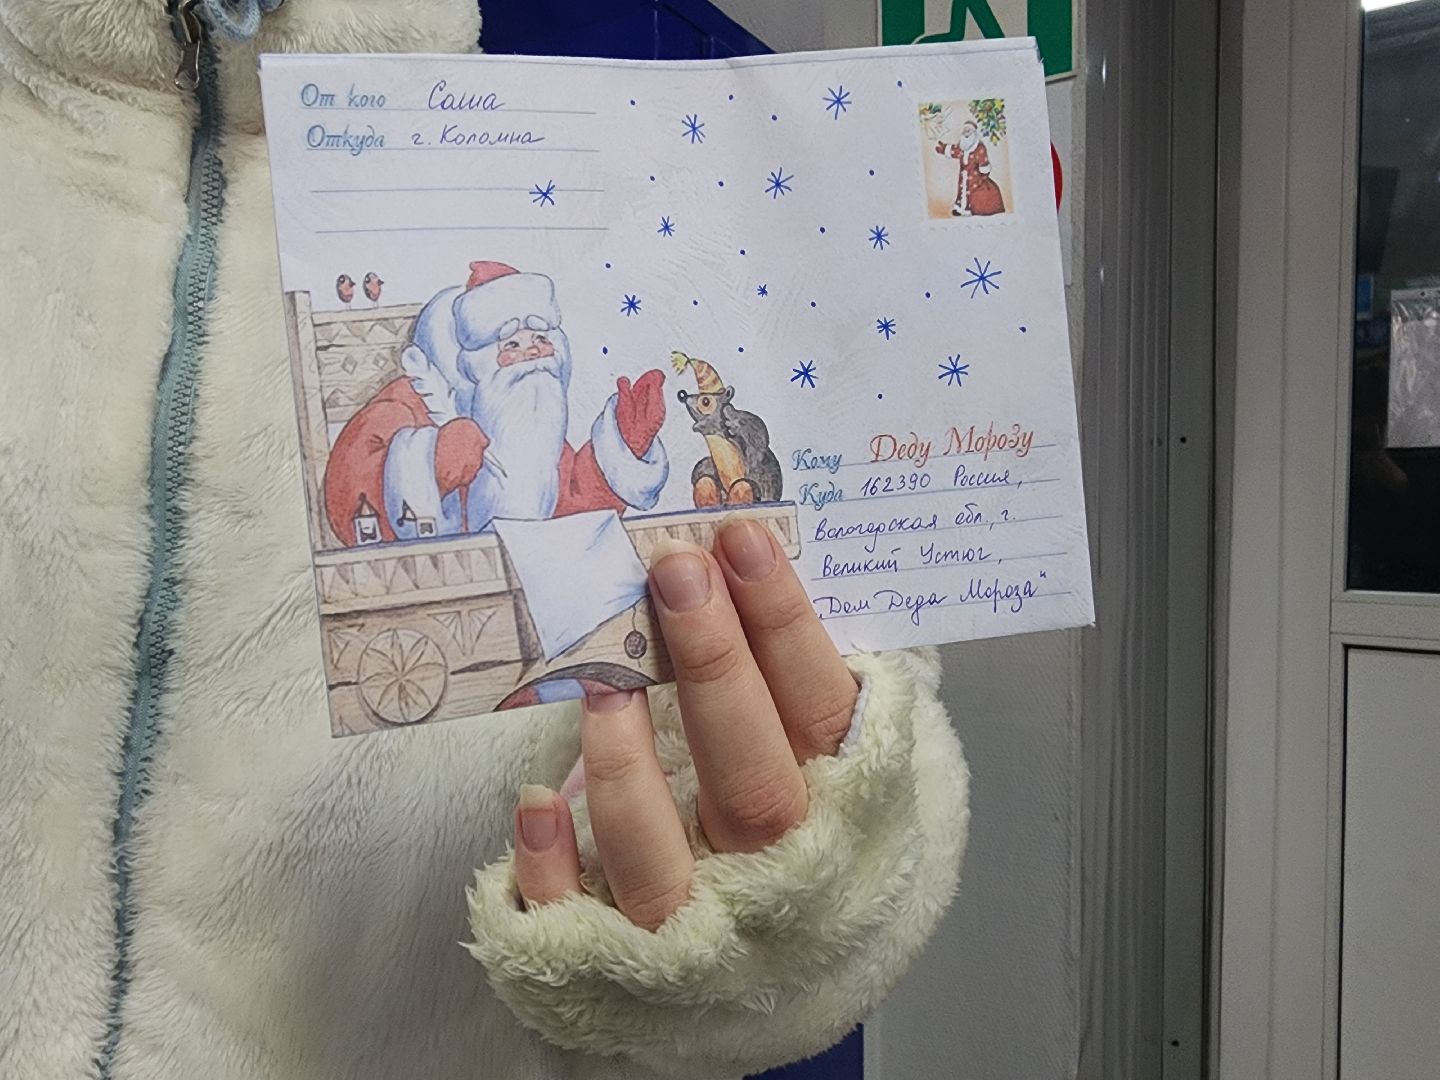 От кого Саша
Откуда г. Коломна
Кому Деду Морозу
Куда 162390 Россия,
Вологодская обл., г.
Великий Устюг,
„Дом Деда Мороза"